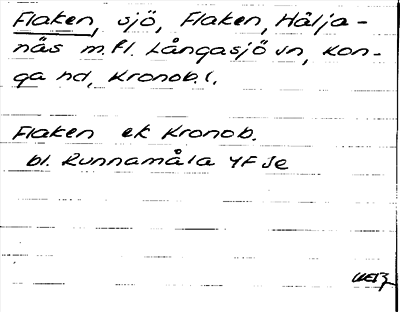 Flaken, sjö, Flaken, Hålja-
näs m.fl. Långasjö sn, Kon-
ga hd, Kronob. l.
Flaken ek Kronob.
bl. Runnamåla YF Je